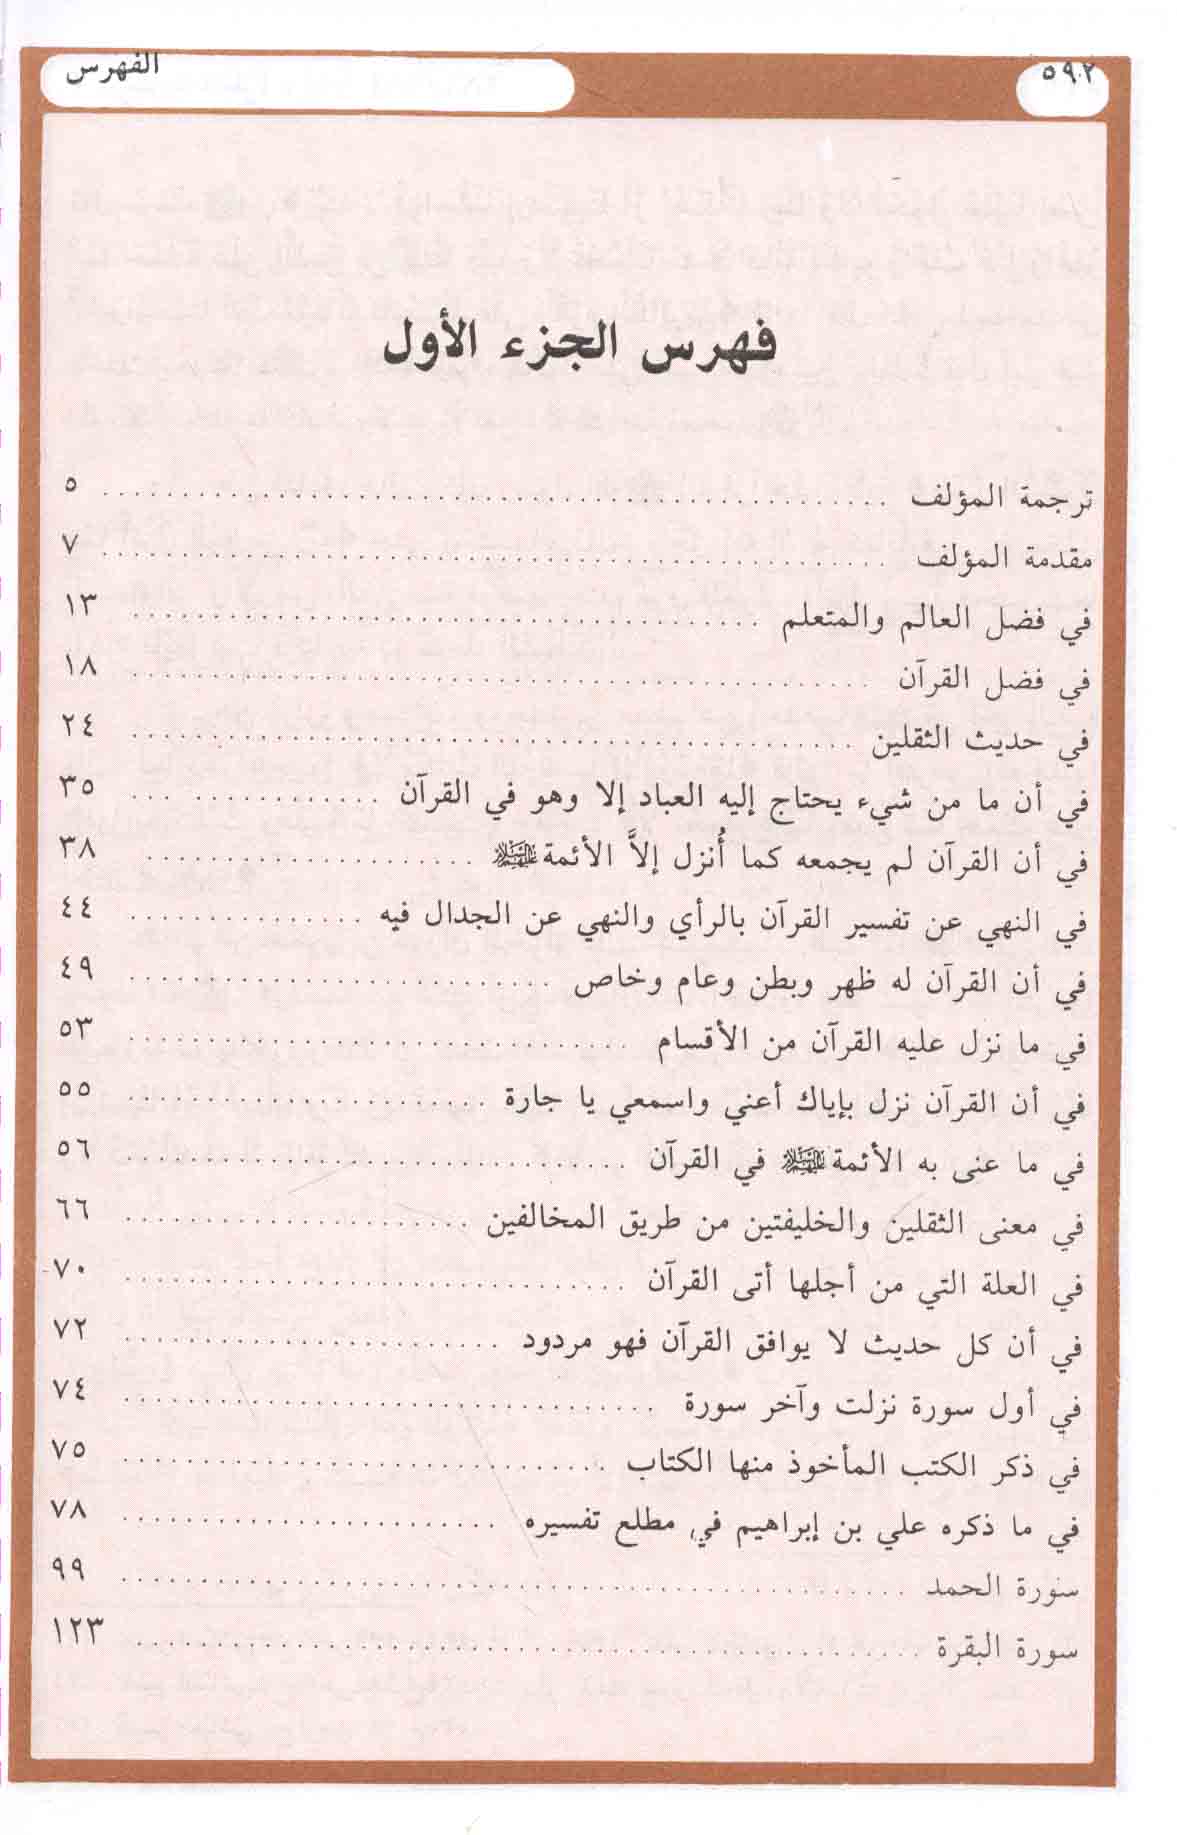 ٥٩٢
الفهرس
فهرس الجزء الأول
ترجمة المؤلف ٥
مقدمة المؤلف ٧
في فضل العالم والمتعلم ١٣
في فضل القرآن ١٨
في حديث الثقلين ٢٤
في أن ما من شيء يحتاج إليه العباد إلا وهو في القرآن ٣٥
في أن القرآن لم يجمعه كما أُنزل إلاَّ الأئمة ٣٨
في النهي عن تفسير القرآن بالرأي والنهي عن الجدال فيه ٤٤
في أن القرآن له ظهر وبطن وعام وخاص ٤٩
في ما نزل عليه القرآن من الأقسام ٥٣
في أن القرآن نزل بإياك أعني واسمعي يا جارة ٥٥
في ما عنى به الأئمة في القرآن ٥٦
في معنى الثقلين والخليفتين من طريق المخالفين ٦٦
في العلة التي من أجلها أتى القرآن ٧٠
في أن كل حديث لا يوافق القرآن فهو مردود ٧٢
في أول سورة نزلت وآخر سورة ٧٤
في ذكر الكتب المأخوذ منها الكتاب ٧٥
في ما ذكره علي بن إبراهيم في مطلع تفسيره ٧٨
سورة الحمد ٩٩
سورة البقرة ١٢٣